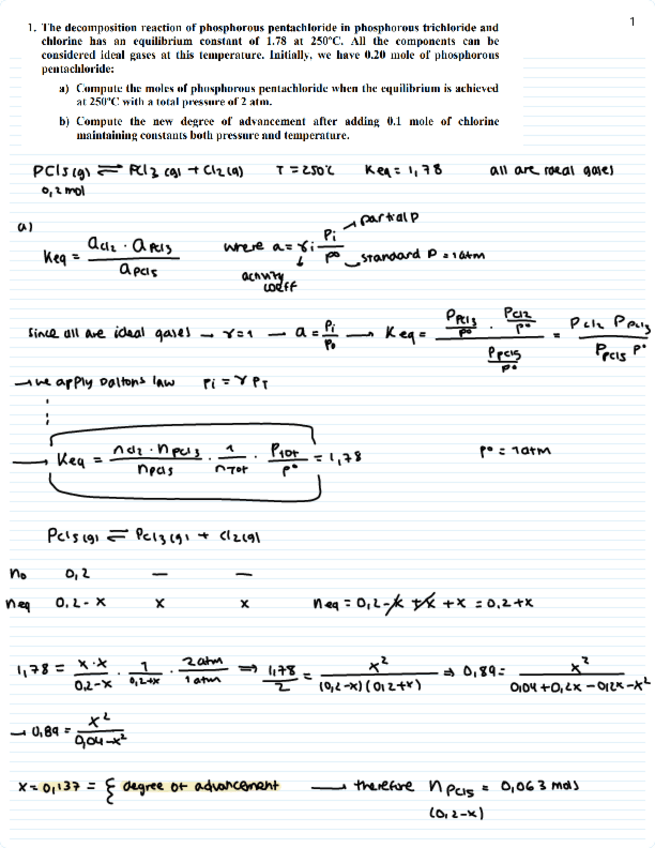 1
1. The decomposition reaction of phosphorous pentachloride in phosphorous trichloride and
chlorine has an equilibrium constant of 1.78 at 250°C. All the components can be
considered ideal gases at this temperature. Initially, we have 0.20 mole of phosphorous
pentachloride:
a) Compute the moles of phosphorous pentachloride when the equilibrium is achieved
at 250°C with a total pressure of 2 atm.
b) Compute the new degree of advancement after adding 0.1 mole of chlorine
maintaining constants both pressure and temperature.
PCl5 (g) ⇌ PCl3 (g) + Cl2 (g) T = 250°C Keq = 1,78 all are ideal gases
0,2 mol
a)
Keq = aCl2 · aPCl3 / aPCl5 where a = γi Pi / P° → partial P
standard P = 1 atm
activity
coeff
Since all are ideal gases → γ = 1 → a = Pi / P0 → Keq = (PPCl3 / P° · PCl2 / P°) / (PPCl5 / P°) = PCl2 PPCl3 / PPCl5 P°
→ we apply Daltons law Pi = Y PT
→ Keq = nCl2 · nPCl3 / nPCl5 · 1 / nTOT · PTOT / P° = 1,78 P° = 1 atm
PCl5 (g) ⇌ PCl3 (g) + Cl2 (g)
n0 0,2 — —
neq 0,2 - x x x neq = 0,2 - x + x + x = 0,2 + x
1,78 = x · x / 0,2 - x · 1 / 0,2 + x · 2 atm / 1 atm ⇒ 1,78 / 2 = x² / (0,2 - x)(0,2 + x) ⇒ 0,89 = x² / 0,04 + 0,2x - 0,2x - x²
→ 0,89 = x² / 0,04 - x²
x = 0,137 = ξ degree of advancement → therefore nPCl5 = 0,063 mols
(0,2 - x)